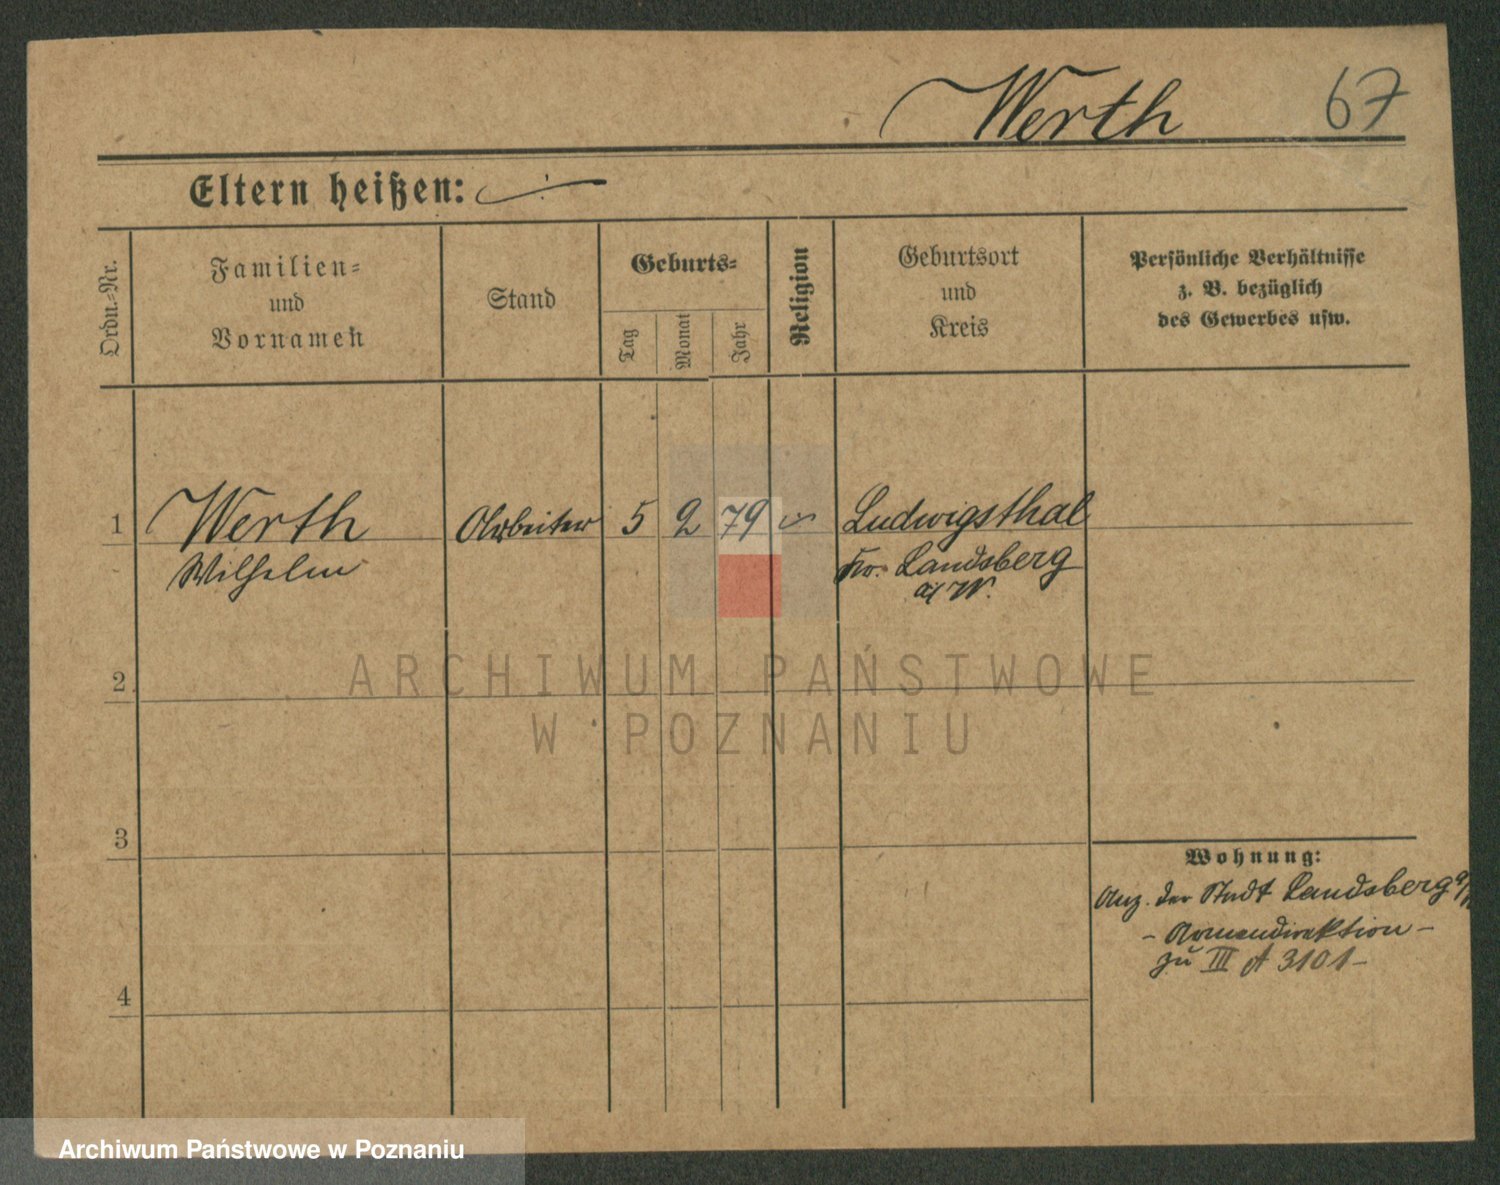 Werth 67
Eltern heißen:
Ordn.-Nr.
Familien-
und
Vornamen
Stand
Geburts-
Tag
Monat
Jahr
Religion
Geburtsort
und
Kreis
Persönliche Verhältnisse
z. B. bezüglich
des Gewerbes usw.
1 Werth Arbeiter 5 2 79 Ludwigsthal
Wilhelm Kr. Landsberg
a/W.
ARCHIWUM PAŃSTWOWE
W POZNANIU
2
3
Wohnung:
Anz. der Stadt Landsberg a/
- Armendirektion -
zu III A 3101 -
4
Archiwum Państwowe w Poznaniu